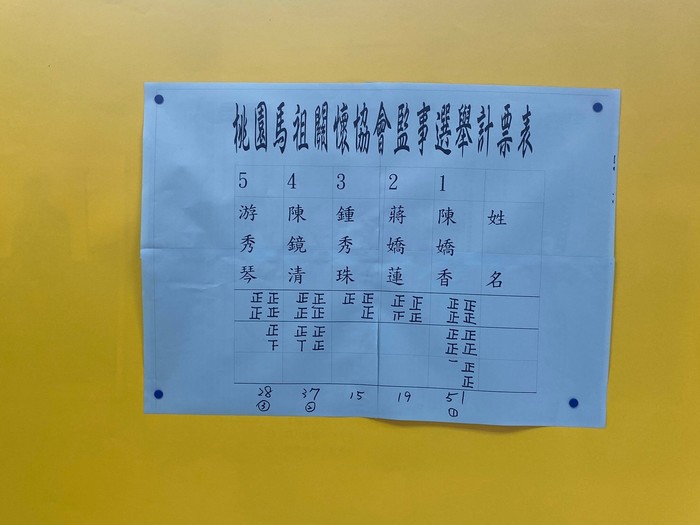 桃園馬祖關懷協會監事選舉計票表
姓名
1
陳嬌香
正正
正正
正正
正正
一正
正
51
①
2
蔣嬌蓮
正正
正
19
3
鍾秀珠
正正
正
15
4
陳鏡清
正正
正正
正正
丅正
37
②
5
游秀琴
正正
正正
正
下
28
③